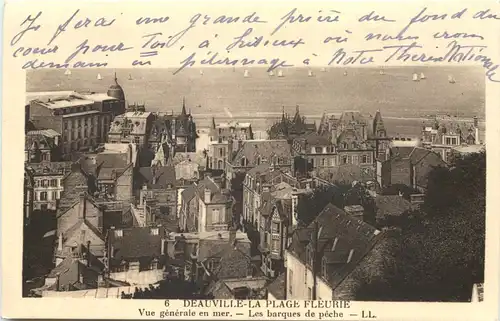 Je ferai une grande prière du fond du
cœur pour Toi à Lisieux où nous irons
demain en pèlerinage à Notre Therese Nationale
6 DEAUVILLE-LA PLAGE FLEURIE
Vue générale en mer. — Les barques de pêche — LL.